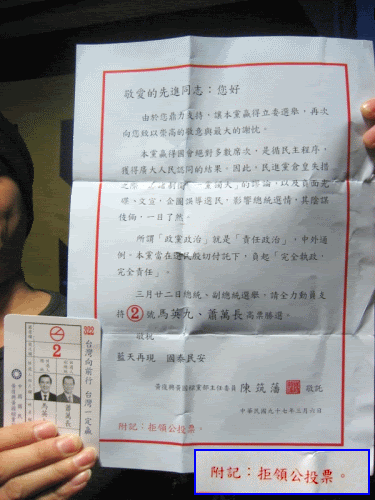 敬愛的先進同志：您好
由於您鼎力支持，讓本黨贏得立委選舉，再次
向您致以崇高的敬意與最大的謝忱。
本黨贏得國會絕對多數席次，是循民主程序，
獲得廣大人民認同的結果。因此，民進黨倉皇失措
之際
一黨獨大」的謬論，以及負面光
碟、文宣，企圖誤導選民，影響總統選情，其陰謀
伎倆，一目了然。
所謂「政黨政治」就是「責任政治」，中外通
例。本黨當在選民殷切付託下，負起「完全執政，
完全責任」。
三月廿二日總統、副總統選舉，請全力動員支
持②號馬英九、蕭萬長高票勝選。
敬祝
藍天再現 國泰民安
黃復興黃國樑黨部主任委員 陳筑藩 敬託
中華民國九十七年三月六日
附記：拒領公投票。
322
台灣向前行 台灣一定贏
2
馬英
蕭萬長
中國國民
附記：拒領公投票。